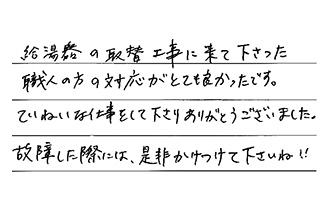 給湯器の取替工事に来て下さった
職人の方の対応がとても良かったです。
ていねいな仕事をして下さりありがとうございました。
故障した際には、是非かけつけて下さいね!!